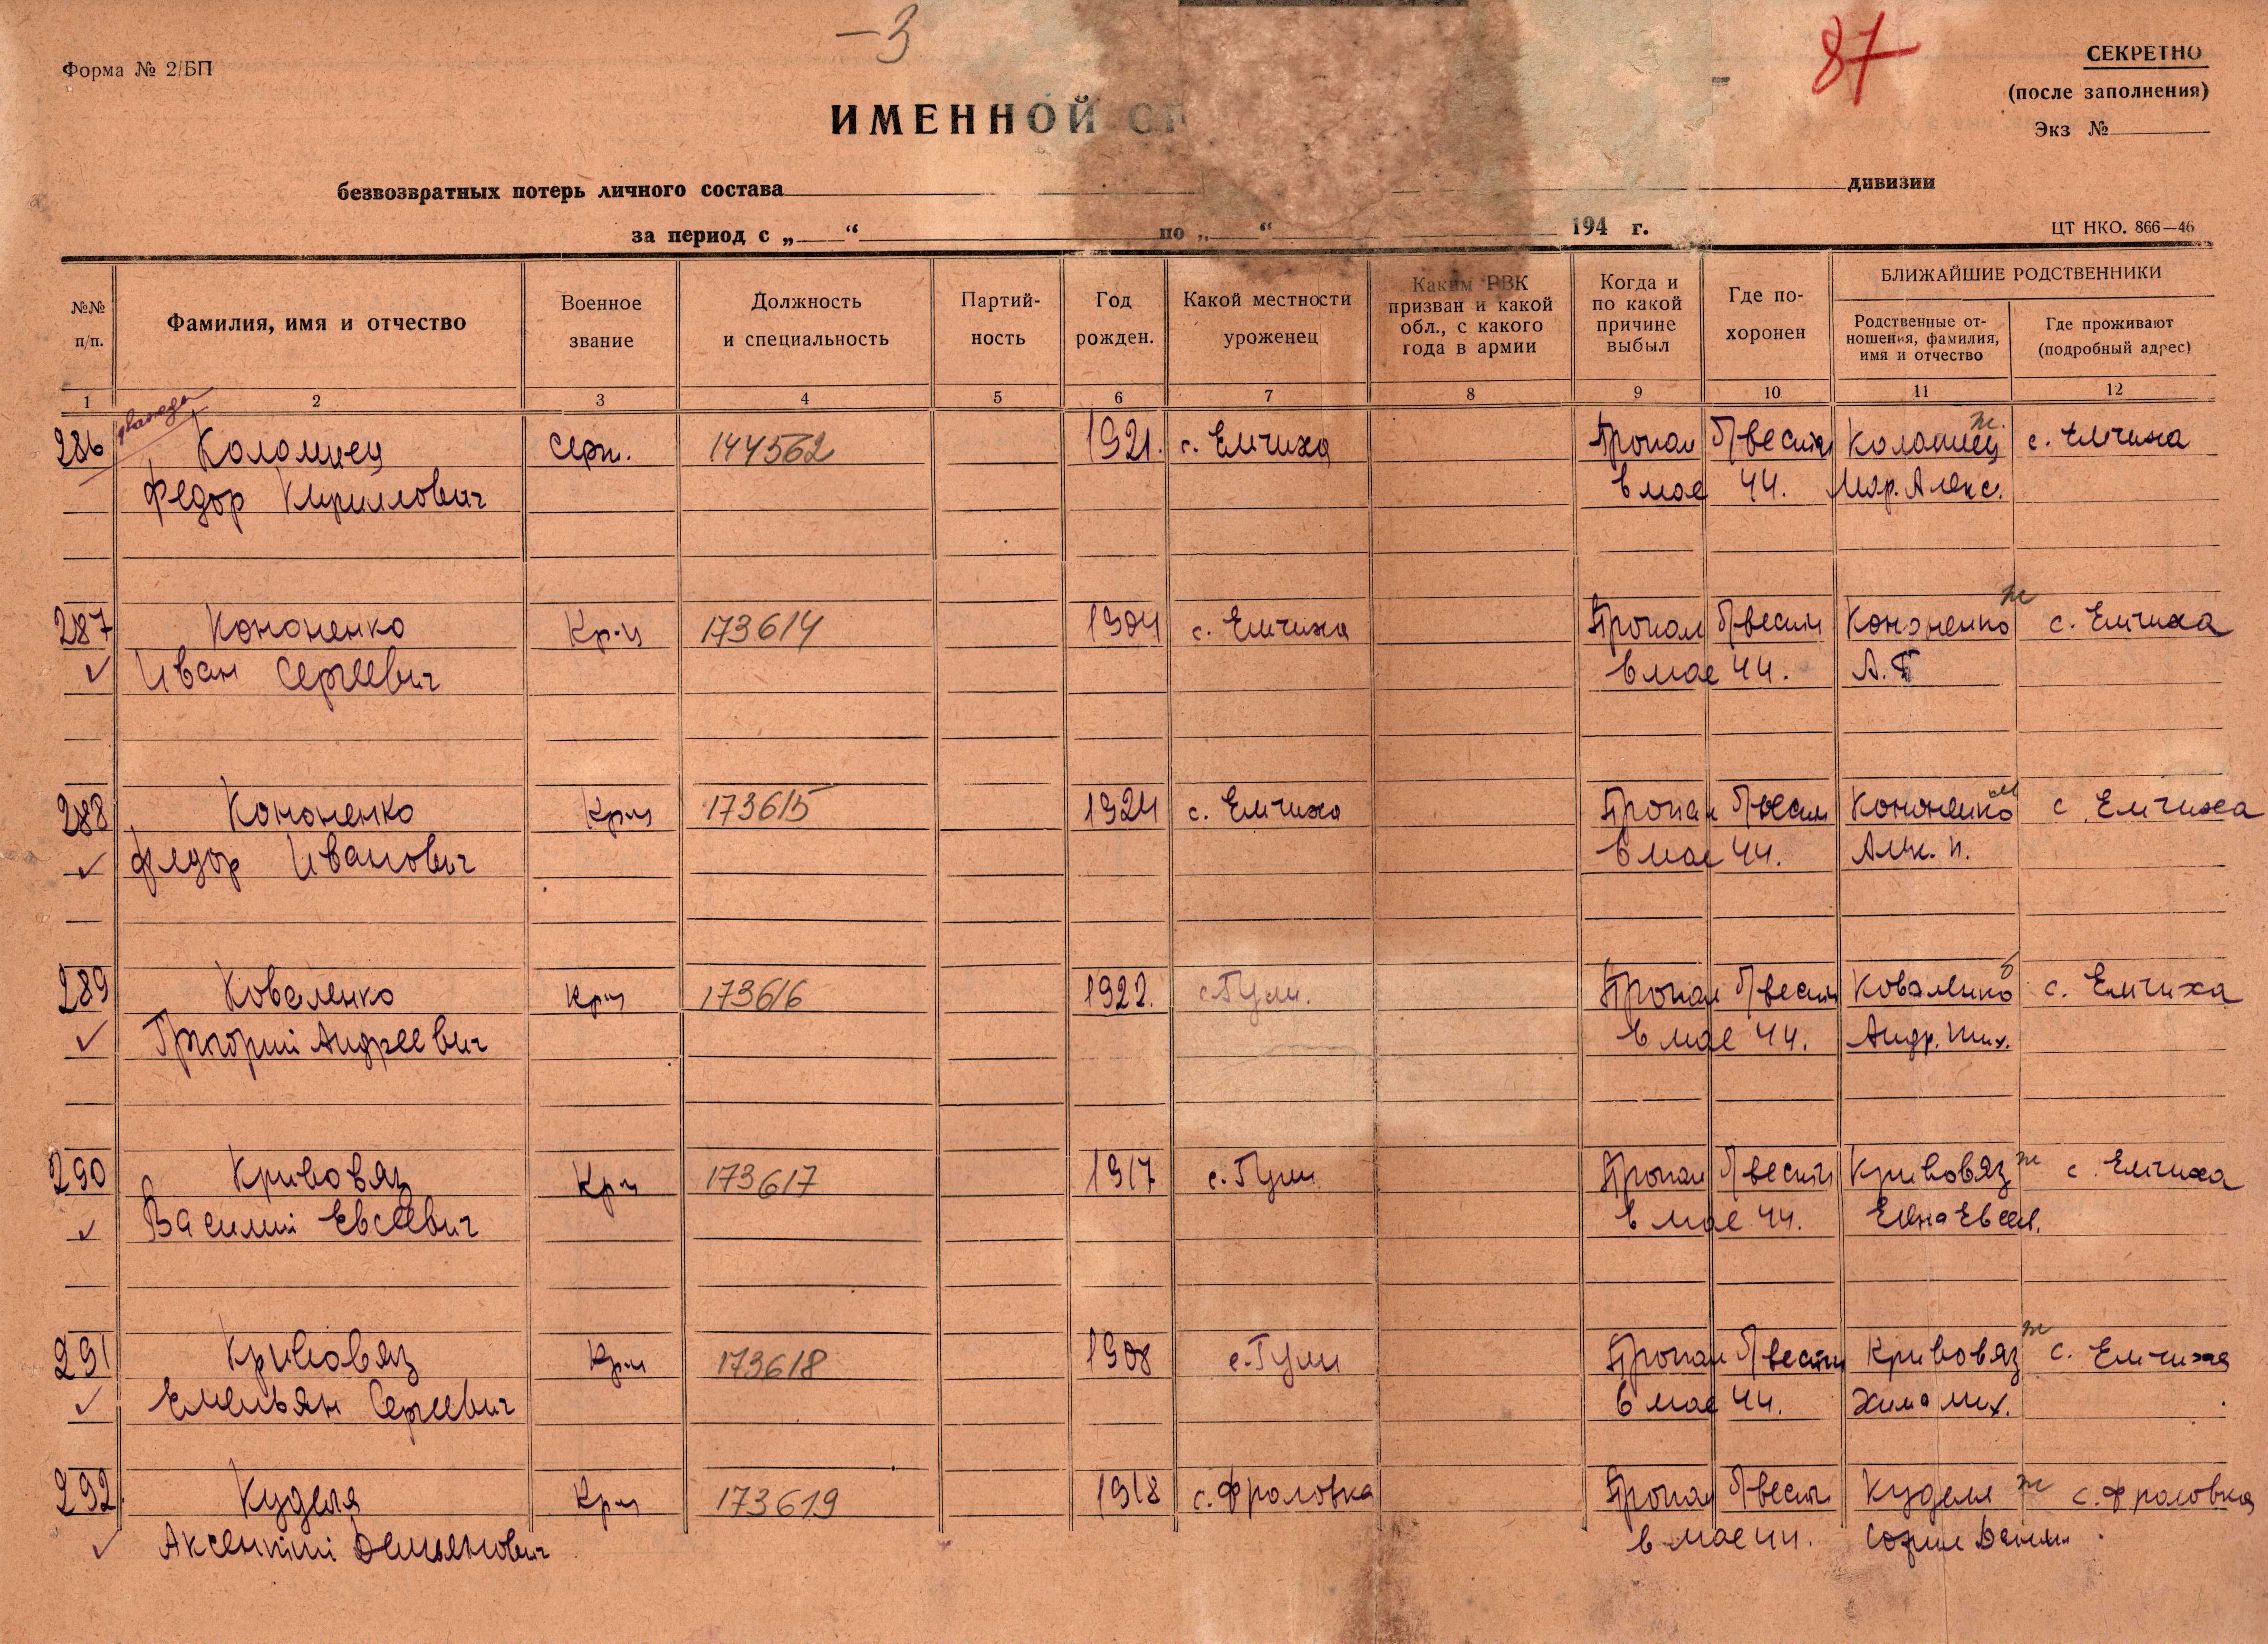 —3
87
Форма № 2/БП
СЕКРЕТНО
(после заполнения)
Экз №
ИМЕННОЙ СП
безвозвратных потерь личного состава дивизии
за период с „ “ по „ “ 194 г.
ЦТ НКО. 866—46
№№ п/п.
Фамилия, имя и отчество
Военное звание
Должность и специальность
Партий-ность
Год рожден.
Какой местности уроженец
Каким РВК призван и какой обл., с какого года в армии
Когда и по какой причине выбыл
Где по-хоронен
БЛИЖАЙШИЕ РОДСТВЕННИКИ
Родственные от-ношения, фамилия, имя и отчество
Где проживают (подробный адрес)
1 2 3 4 5 6 7 8 9 10 11 12
286 Коломиец Серж. 144562 1921. с. Емчиха Пропал б/вести Коломиец ж. с. Емчиха
Федор Кириллович в мае 44. Мар. Алекс.
287 Кононенко Кр-ц 173614 1904 с. Емчиха Пропал б/вести Кононенко ж с. Емчиха
Иван Сергеевич в мае 44. А.Т
288 Кононенко Кр-ц 173615 1924 с. Емчиха Пропал б/вести Кононенко м с. Емчиха
Федор Иванович в мае 44. П.
289 Коваленко Кр-ц 173616 1922. с. Гули. Пропал б/вести Коваленко с. Емчиха
Григорий Андреевич в мае 44. Андр.
290 Кривовяз Кр-ц 173617 1917 с. Гули Пропал б/вести Кривовяз ж с. Емчиха
Василий Евсеевич в мае 44. Елена Евсев.
291 Кривовяз Кр-ц 173618 1908 с. Гули Пропал б/вести Кривовяз ж с. Емчиха
Емельян Сергеевич в мае 44. Хима Мих.
292 Куделя Кр-ц 173619 1918 с. Фроловка Пропал б/вести Куделя ж с. Фроловка
Аксентий Демьянович в мае 44. София